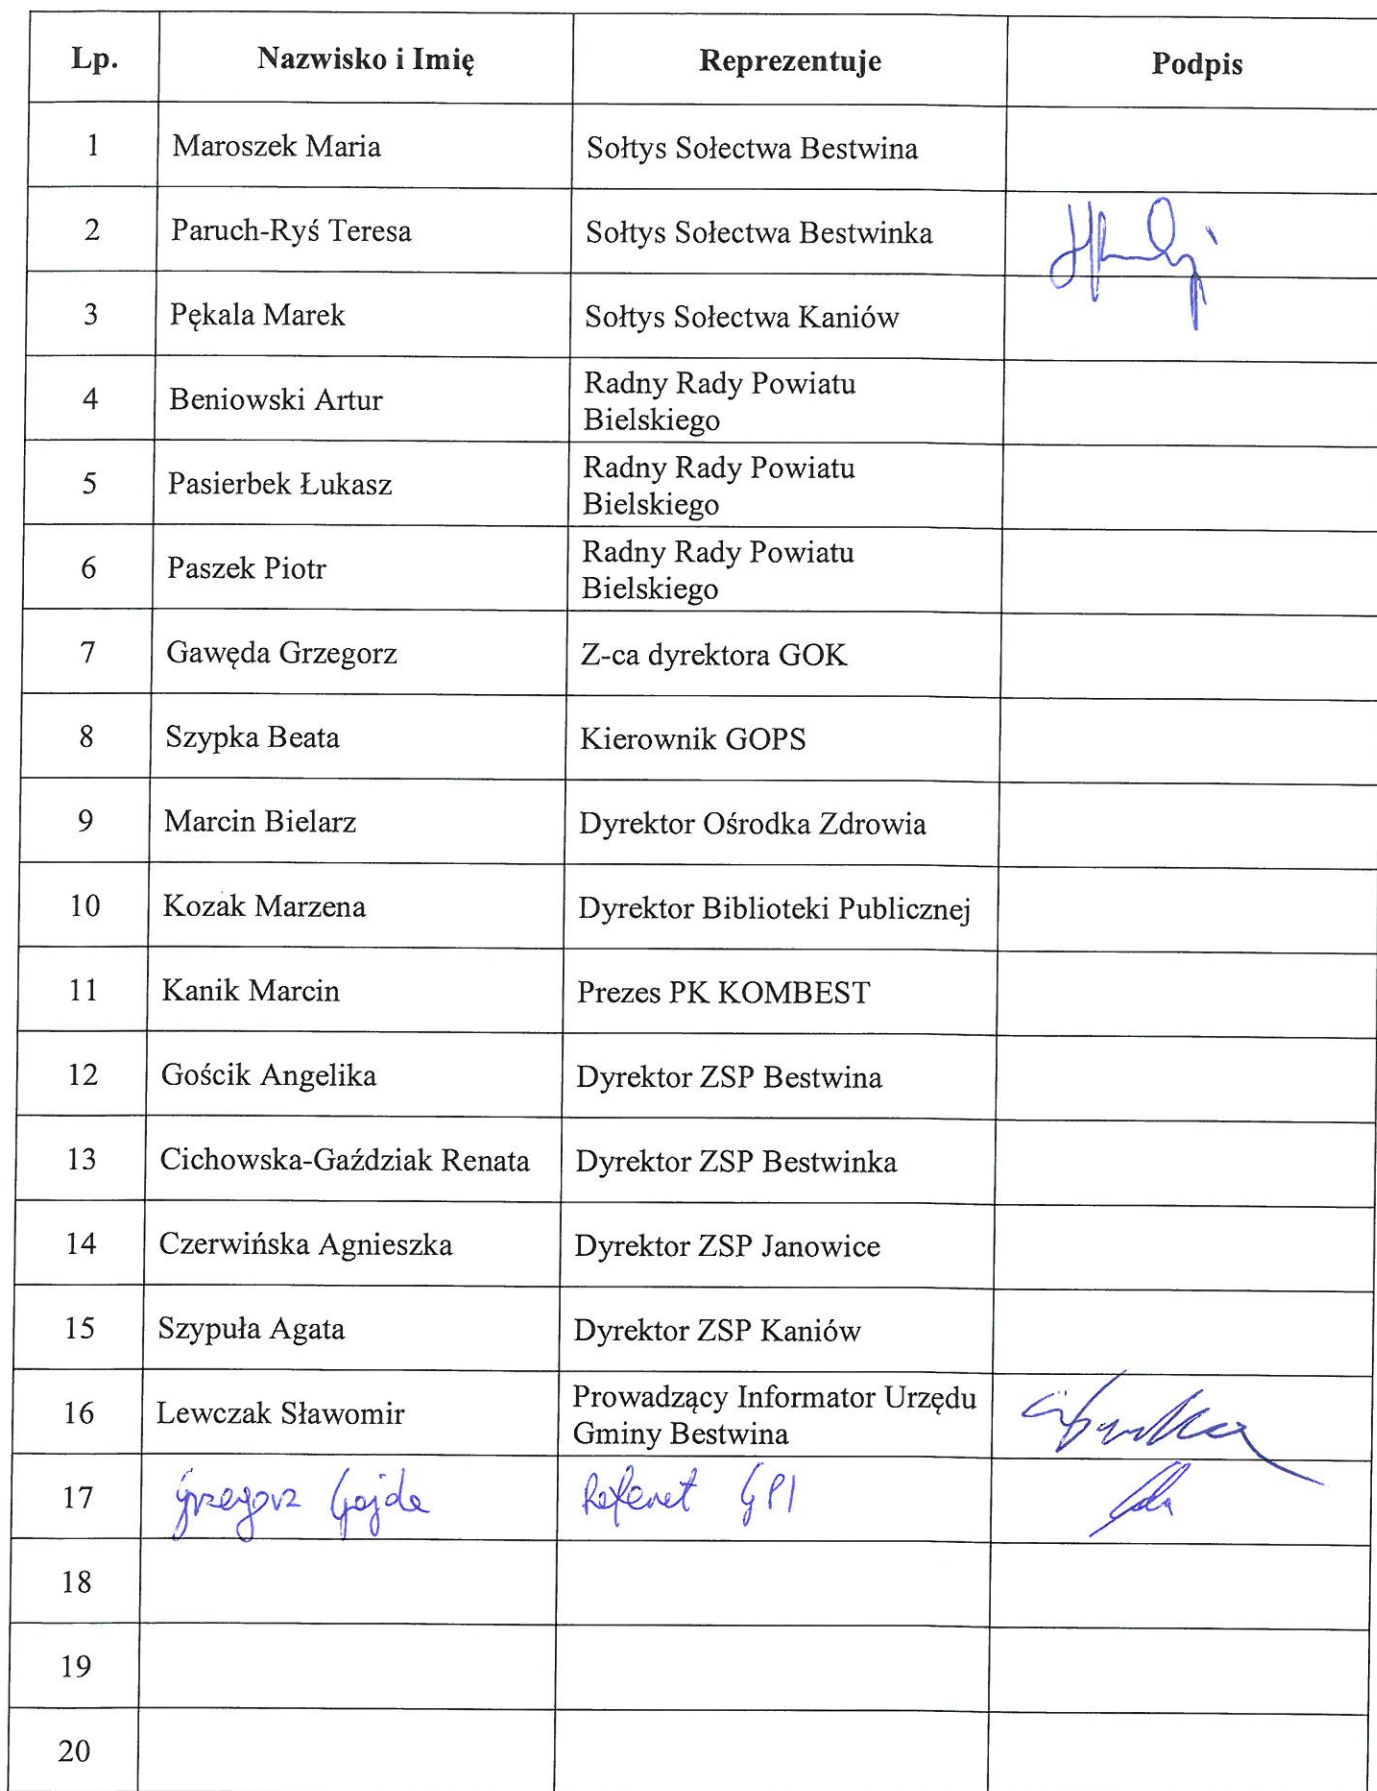 Lp. Nazwisko i Imię Reprezentuje Podpis
1 Maroszek Maria Sołtys Sołectwa Bestwina
2 Paruch-Ryś Teresa Sołtys Sołectwa Bestwinka
3 Pękala Marek Sołtys Sołectwa Kaniów
4 Beniowski Artur Radny Rady Powiatu
Bielskiego
5 Pasierbek Łukasz Radny Rady Powiatu
Bielskiego
6 Paszek Piotr Radny Rady Powiatu
Bielskiego
7 Gawęda Grzegorz Z-ca dyrektora GOK
8 Szypka Beata Kierownik GOPS
9 Marcin Bielarz Dyrektor Ośrodka Zdrowia
10 Kozak Marzena Dyrektor Biblioteki Publicznej
11 Kanik Marcin Prezes PK KOMBEST
12 Gościk Angelika Dyrektor ZSP Bestwina
13 Cichowska-Gaździak Renata Dyrektor ZSP Bestwinka
14 Czerwińska Agnieszka Dyrektor ZSP Janowice
15 Szypuła Agata Dyrektor ZSP Kaniów
16 Lewczak Sławomir Prowadzący Informator Urzędu
Gminy Bestwina
17 Grzegorz Gajda Referat GPI
18
19
20